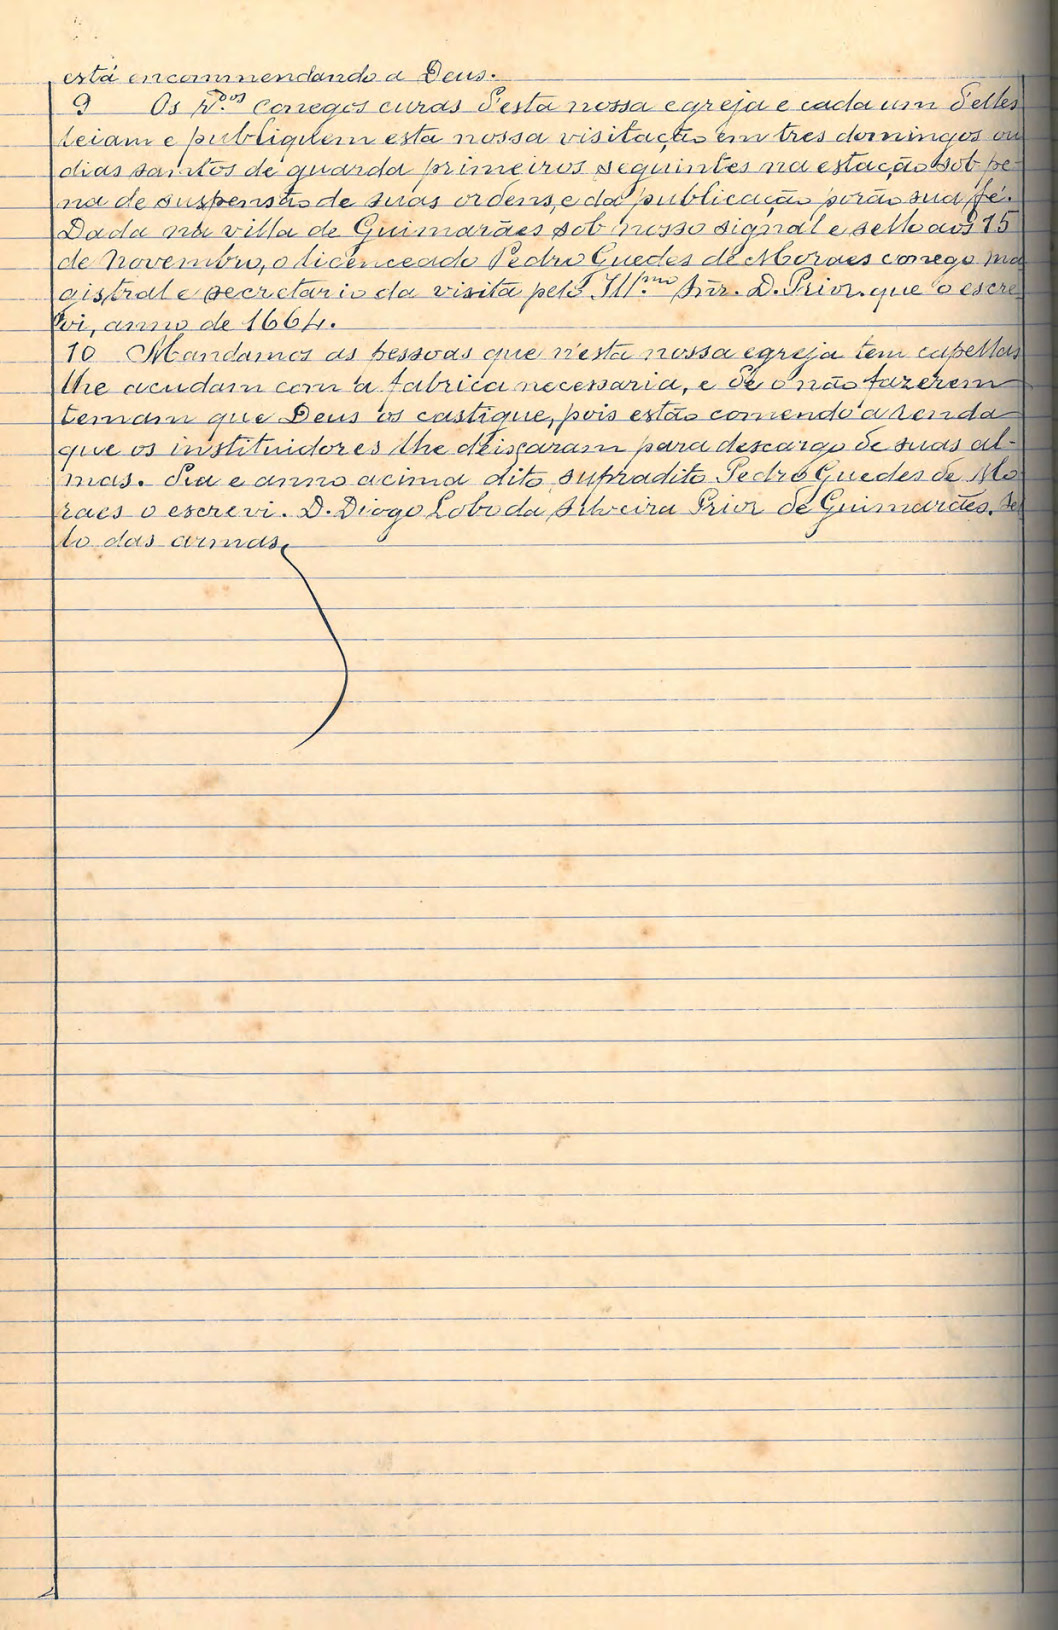 está encommendando a Deus.
9 Os r.dos conegos curas d'esta nossa egreja e cada um d'elles
leiam e publiquem esta nossa visitação em tres domingos ou
dias santos de guarda primeiros seguintes na estação sob pe-
na de suspensão de suas ordens, e da publicação porão sua fé.
Dada na villa de Guimarães sob nosso signal e sello aos 15
de Novembro, o licenceado Pedro Guedes de Moraes conego ma
gistral e secretario da visita pelo Ill.mo Snr. D. Prior que o escre
vi, anno de 1664.
10 Mandamos as pessoas que n'esta nossa egreja tem capellas
lhe acudam com a fabrica necessaria, e se o não fazerem
temam que Deus os castigue, pois estão comendo a renda
que os instituidores lhe deixaram para descargo de suas al-
mas. Dia e anno acima dito, supradito Pedro Guedes de Mo
raes o escrevi. D. Diogo Lobo da Silveira Prior de Guimarães. Se
lo das armas.